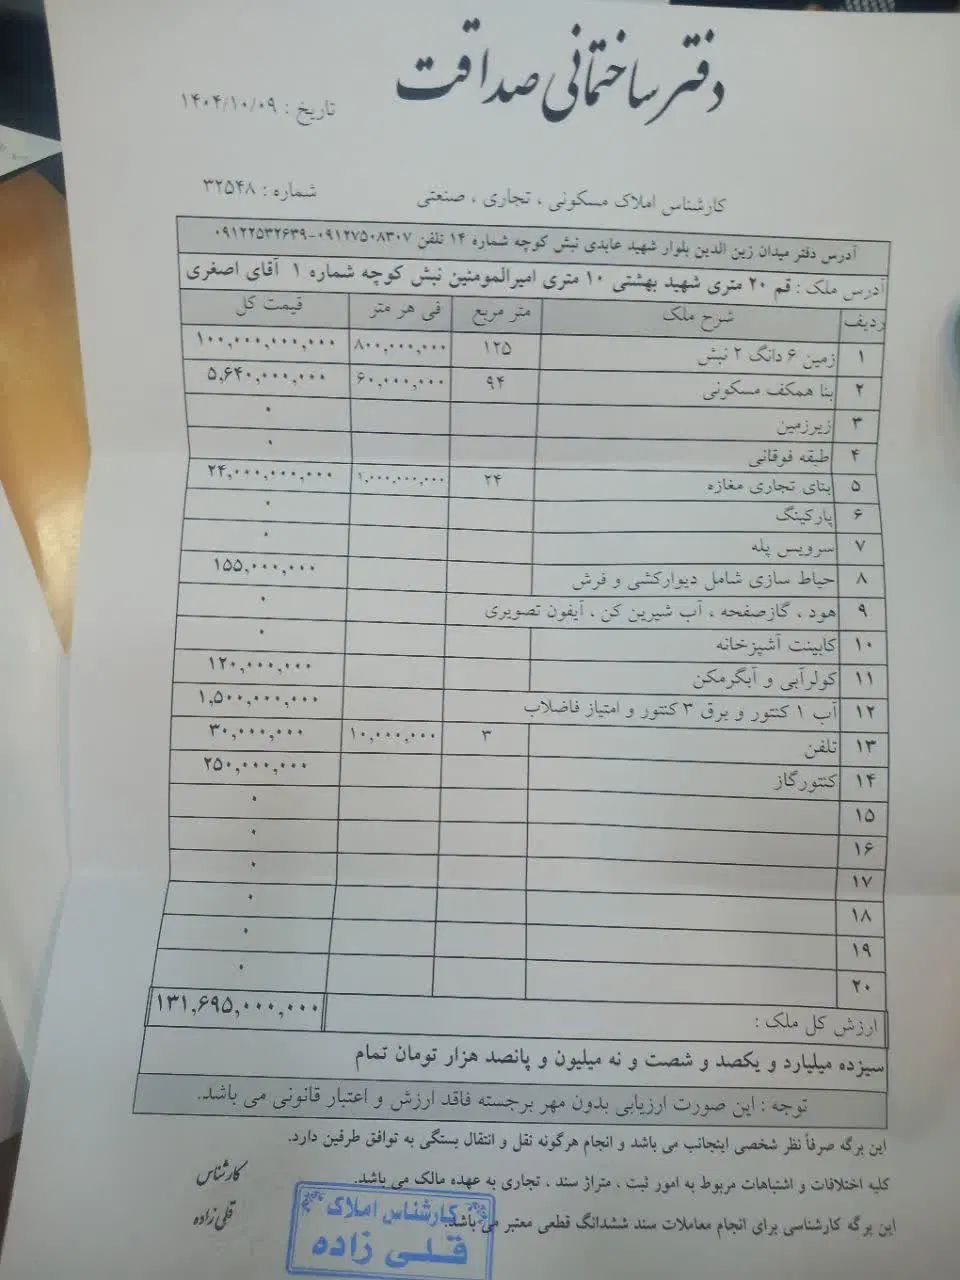 دفتر ساختمانی صداقت
تاریخ : ۱۴۰۴/۱۰/۰۹
شماره : ۳۲۵۴۸
کارشناس املاک مسکونی ، تجاری ، صنعتی
آدرس دفتر میدان زین الدین بلوار شهید عابدی نبش کوچه شماره ۱۴ تلفن ۰۹۱۲۷۵۰۸۳۰۷-۰۹۱۲۲۵۳۲۶۳۹
آدرس ملک : قم ۲۰ متری شهید بهشتی ۱۰ متری امیرالمومنین نبش کوچه شماره ۱ آقای اصغری
ردیف شرح ملک متر مربع فی هر متر قیمت کل
۱ زمین ۶ دانگ ۲ نبش ۱۲۵ ۸۰۰,۰۰۰,۰۰۰ ۱۰۰,۰۰۰,۰۰۰,۰۰۰
۲ بنا همکف مسکونی ۹۴ ۶۰,۰۰۰,۰۰۰ ۵,۶۴۰,۰۰۰,۰۰۰
۳ زیرزمین ۰
۴ طبقه فوقانی ۰
۵ بنای تجاری مغازه ۲۴ ۱,۰۰۰,۰۰۰,۰۰۰ ۲۴,۰۰۰,۰۰۰,۰۰۰
۶ پارکینگ ۰
۷ سرویس پله ۰
۸ حیاط سازی شامل دیوارکشی و فرش ۱۵۵,۰۰۰,۰۰۰
۹ هود ، گازصفحه ، آب شیرین کن ، آیفون تصویری ۰
۱۰ کابینت آشپزخانه ۰
۱۱ کولرآبی و آبگرمکن ۱۲۰,۰۰۰,۰۰۰
۱۲ آب ۱ کنتور و برق ۳ کنتور و امتیاز فاضلاب ۱,۵۰۰,۰۰۰,۰۰۰
۱۳ تلفن ۳ ۱۰,۰۰۰,۰۰۰ ۳۰,۰۰۰,۰۰۰
۱۴ کنتورگاز ۲۵۰,۰۰۰,۰۰۰
۱۵ ۰
۱۶ ۰
۱۷ ۰
۱۸ ۰
۱۹ ۰
۲۰ ۰
ارزش کل ملک : ۱۳۱,۶۹۵,۰۰۰,۰۰۰
سیزده میلیارد و یکصد و شصت و نه میلیون و پانصد هزار تومان تمام
توجه : این صورت ارزیابی بدون مهر برجسته فاقد ارزش و اعتبار قانونی می باشد.
این برگه صرفاً نظر شخصی اینجانب می باشد و انجام هرگونه نقل و انتقال بستگی به توافق طرفین دارد.
کلیه اختلافات و اشتباهات مربوط به امور ثبت ، متراژ سند ، تجاری به عهده مالک می باشد.
این برگه کارشناسی برای انجام معاملات سند ششدانگ قطعی معتبر می باشد.
کارشناس
قلی زاده
کارشناس املاک
قلی زاده